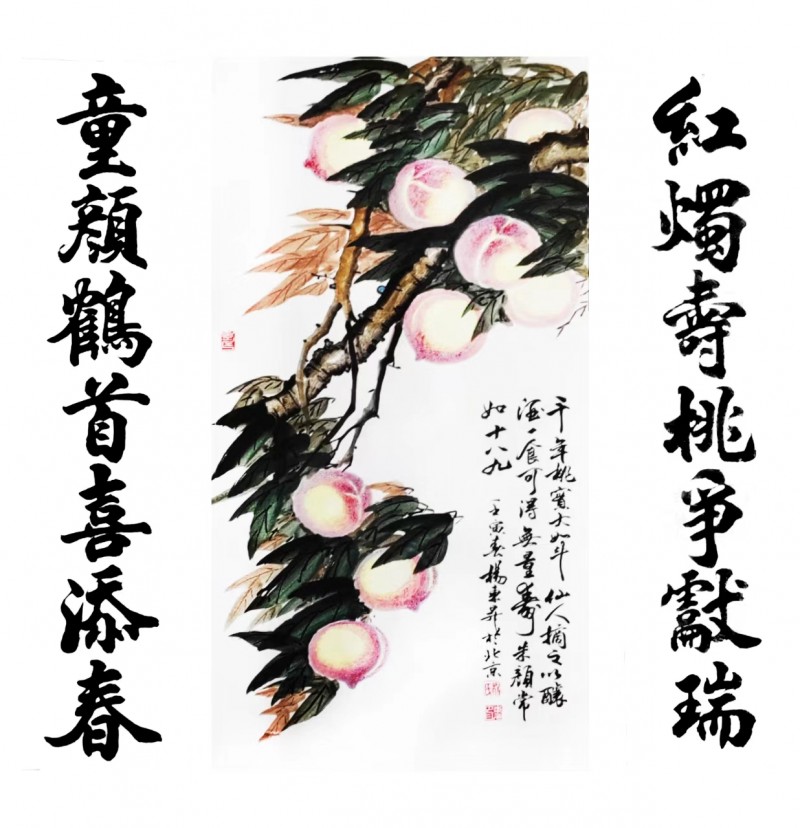 紅燭壽桃爭獻瑞
千年桃實大如斗 仙人摘之以釀
酒一食可得無量壽 朱顔常
如十八九 壬寅春楊東於北京
童顔鶴首喜添春